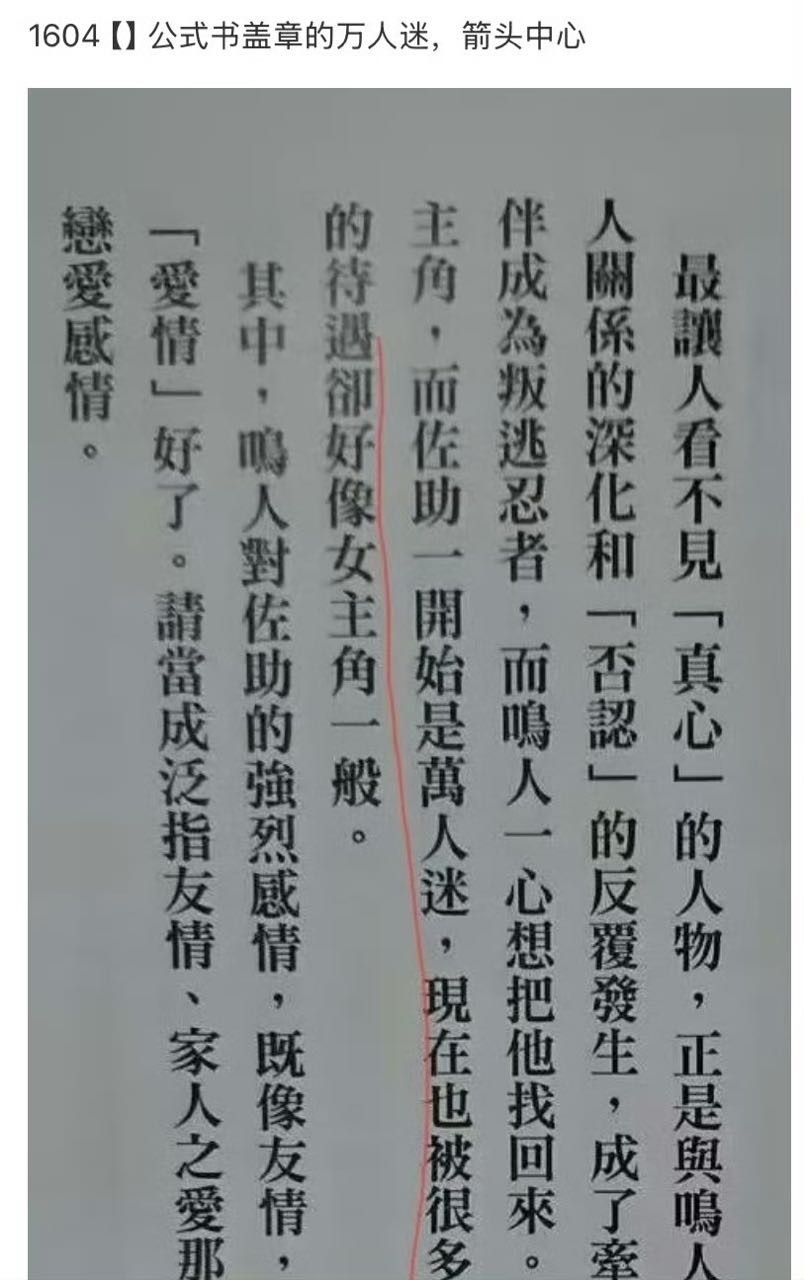 1604【】公式书盖章的万人迷，箭头中心
最讓人看不見「真心」的人物，正是與鳴人
人關係的深化和「否認」的反覆發生，成了牽
伴成為叛逃忍者，而鳴人一心想把他找回來。
主角，而佐助一開始是萬人迷，現在也被很多
的待遇卻好像女主角一般。
其中，鳴人對佐助的強烈感情，既像友情，
「愛情」好了。請當成泛指友情、家人之愛那
戀愛感情。